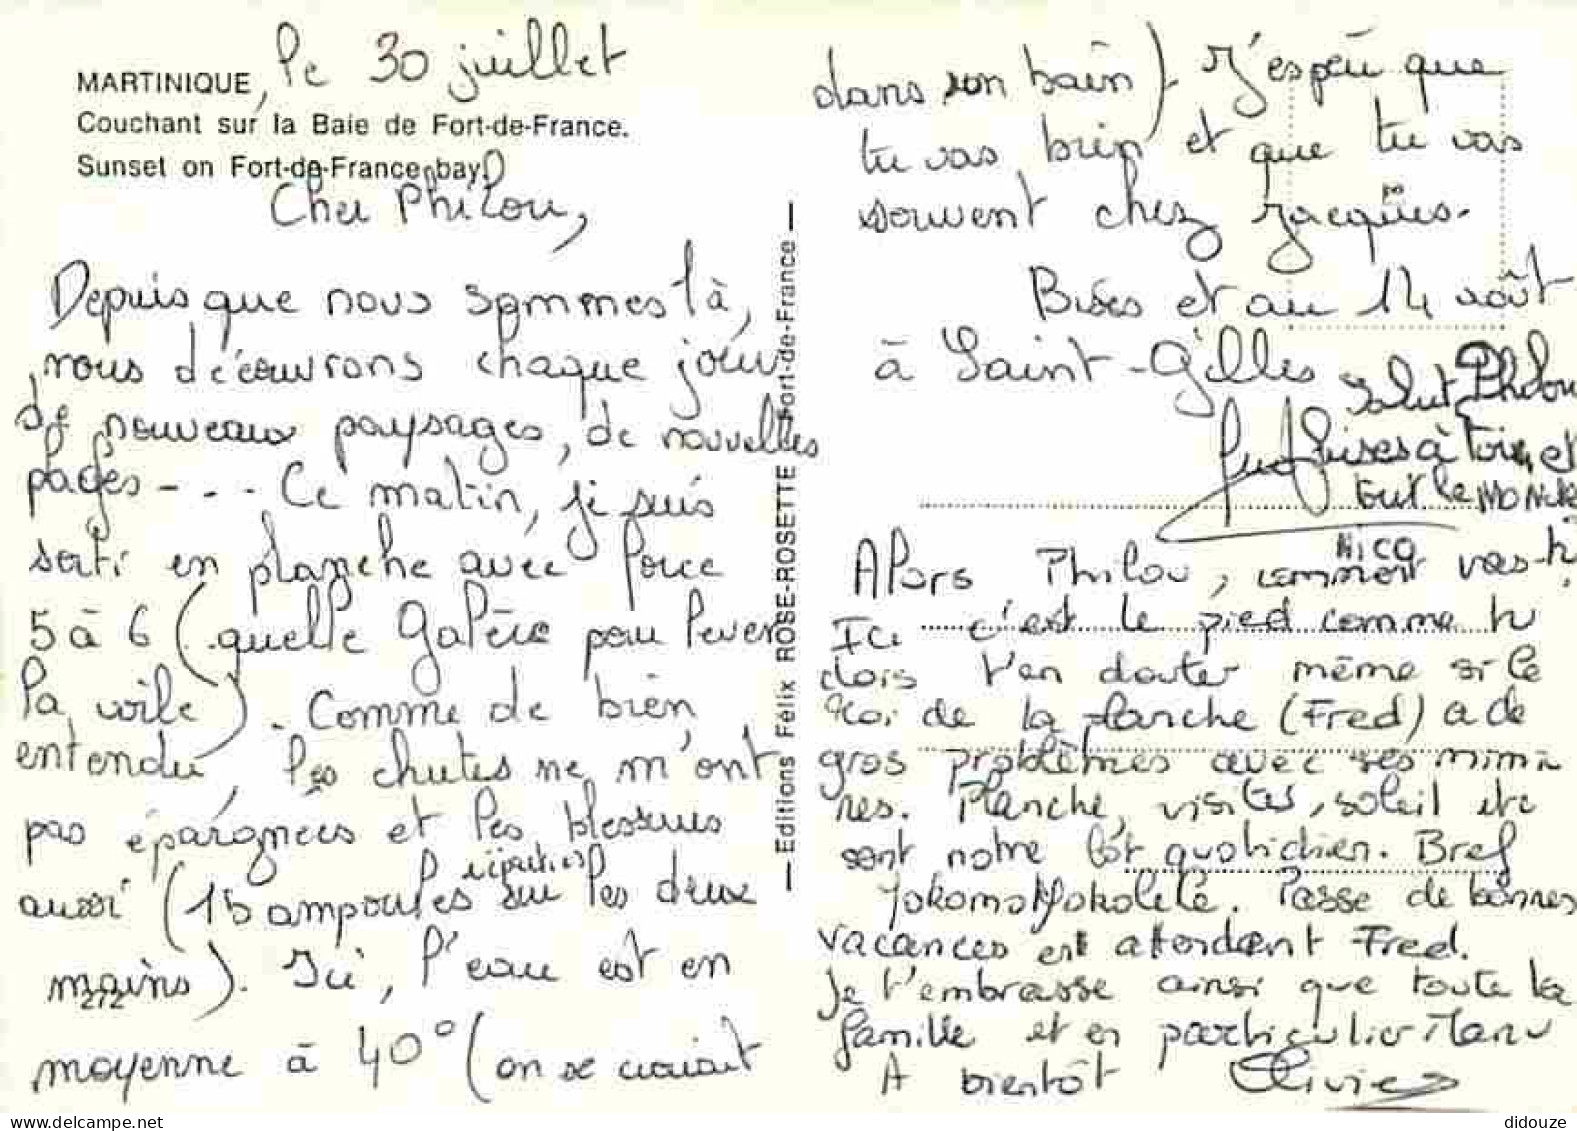 le 30 juillet
MARTINIQUE,
Couchant sur la Baie de Fort-de-France.
Sunset on Fort-de-France bay
Cher Philou,
Depuis que nous sommes là,
nous découvrons chaque jour
de nouveaux paysages, de nouvelles
plages - - - Ce matin, je suis
sorti en planche avec force
5 à 6 (quelle galère pour lever
la voile). Comme de bien
entendu, les chutes ne m'ont
pas épargnées et les blessures
aussi (15 ampoules réparties sur les deux
mains). Ici, l'eau est en
272
moyenne à 40° (on se croirait
— Editions Félix ROSE-ROSETTE Fort-de-France —
dans son bain). J'espère que
tu vas bien et que tu vas
souvent chez Jacques.
Bises et au 14 août
à Saint-Gilles
Fred
Salut Philou
bises à toi et
tout le monde
Nico
Alors Philou, comment vas-tu?
Ici c'est le pied comme tu
dois t'en douter même si le
roi de la planche (Fred) a de
gros problèmes avec ses mimi
nes. Planche, visites, soleil etc
sont notre lot quotidien. Bref
Passe de bonnes
vacances en attendant Fred.
Je t'embrasse ainsi que toute la
famille et en particulier Manu
A bientôt Olivier
didouze